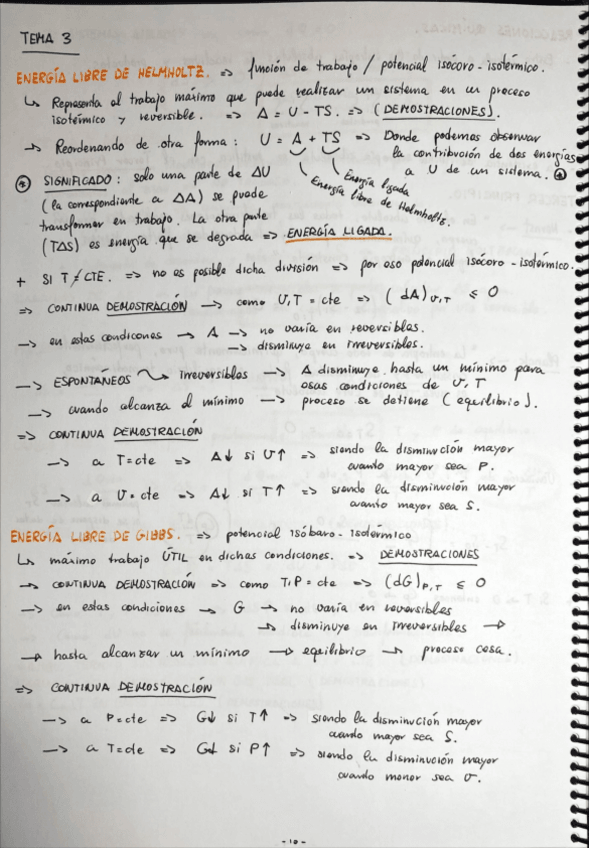 TEMA 3
ENERGÍA LIBRE DE HELMHOLTZ. => función de trabajo / potencial isócoro-isotérmico.
↳ Representa al trabajo máximo que puede realizar un sistema en un proceso
isotérmico y reversible. => A = U - TS. => (DEMOSTRACIONES).
→ Reordenando de otra forma: U = A + TS => Donde podemos observar
la contribución de dos energías
a U de un sistema.
Energía ligada
Energía libre de Helmholtz.
* SIGNIFICADO: solo una parte de ΔU
(la correspondiente a ΔA) se puede
transformar en trabajo. La otra parte
(TΔS) es energía que se degrada => ENERGÍA LIGADA.
+ SI T ≠ CTE. => no es posible dicha división => por eso potencial isócoro-isotérmico.
=> CONTINUA DEMOSTRACIÓN → como V,T = cte => (dA)v,T ≤ 0
→ en estas condicones → A → no varía en reversibles.
→ disminuye en irreversibles.
→ ESPONTÁNEOS ↝ irreversibles → A disminuye hasta un mínimo para
esas condiciones de V,T
→ cuando alcanza el mínimo → proceso se detiene (equilibrio).
=> CONTINUA DEMOSTRACIÓN
→ a T=cte => A↓ si V↑ => siendo la disminución mayor
cuanto mayor sea P.
→ a V=cte => A↓ si T↑ => siendo la disminución mayor
cuanto mayor sea S.
ENERGÍA LIBRE DE GIBBS. => potencial isóbaro-isotérmico
↳ máximo trabajo ÚTIL en dichas condiciones. => DEMOSTRACIONES
→ CONTINUA DEMOSTRACIÓN => como T,P = cte => (dG)P,T ≤ 0
→ en estas condiciones → G → no varía en reversibles
→ disminuye en irreversibles →
→ hasta alcanzar un mínimo → equilibrio → proceso cesa.
=> CONTINUA DEMOSTRACIÓN
→ a P=cte => G↓ si T↑ => siendo la disminución mayor
cuando mayor sea S.
→ a T=cte => G↓ si P↑ => siendo la disminución mayor
cuando menor sea V.
-10-